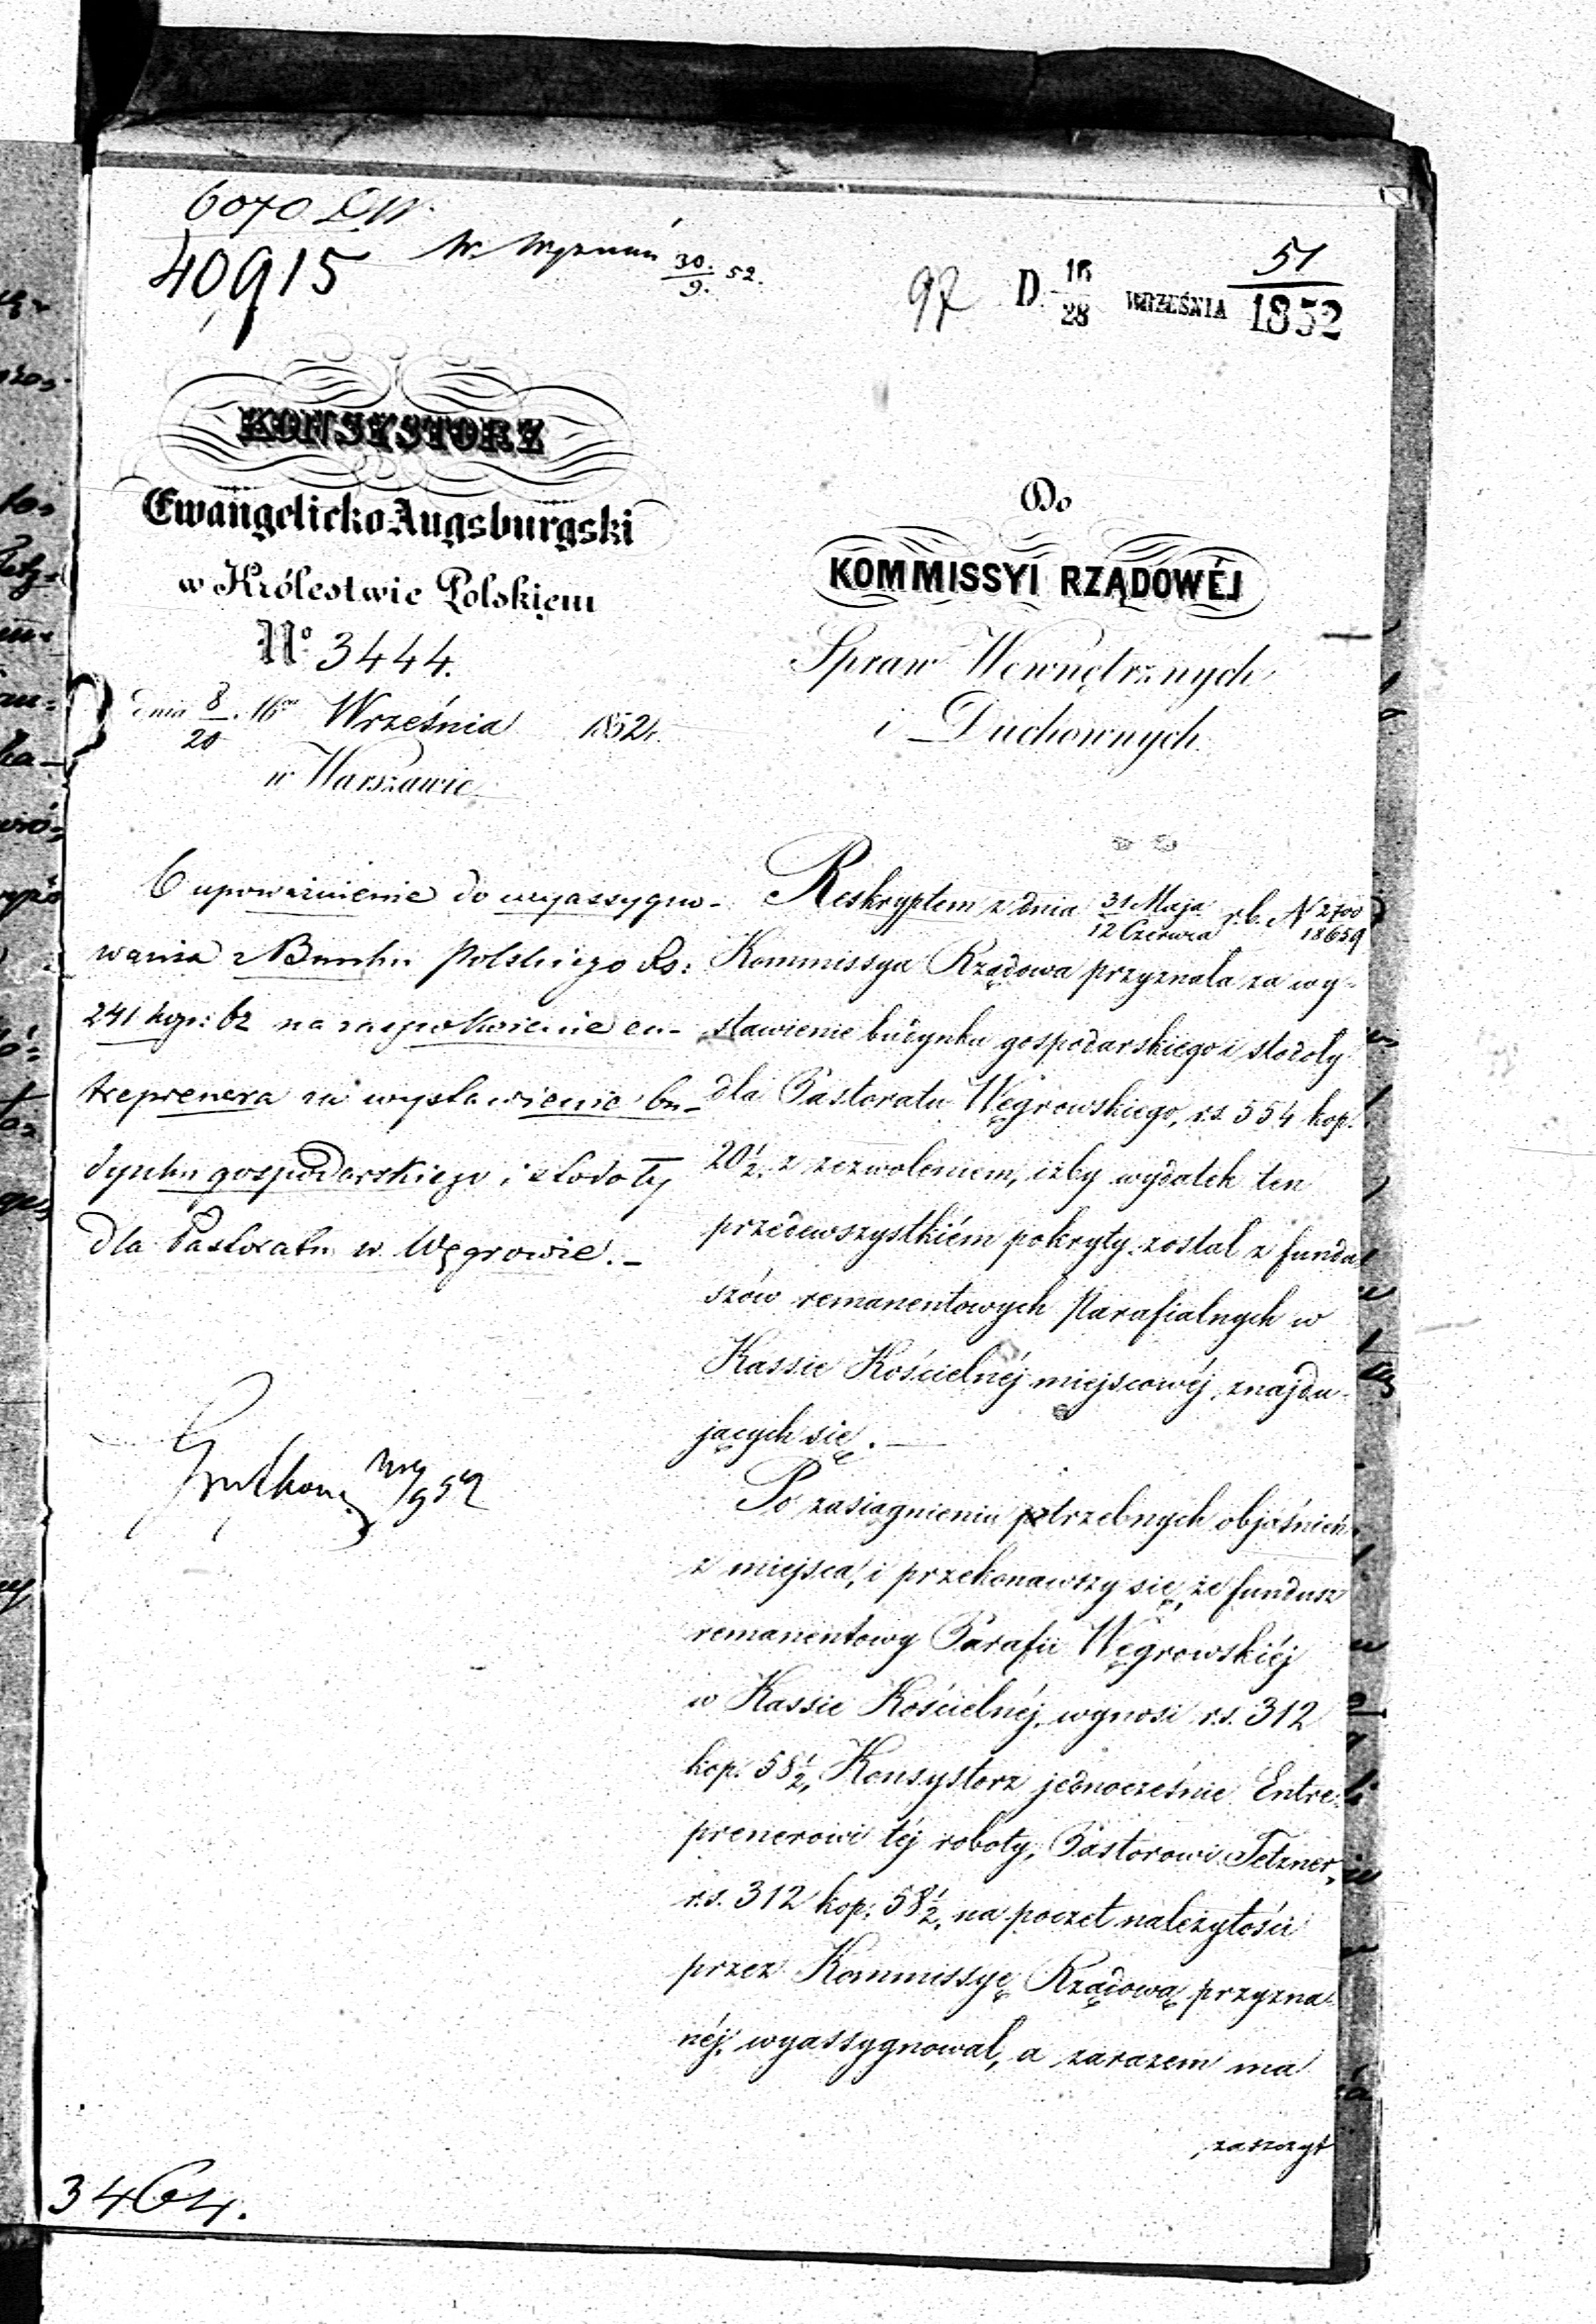 6070 DW.
40915
W. Wyznań 30/9. 52.
97 D. 16/28 WRZEŚNIA 51/1852
KONSYSTORZ
Ewangelicko-Augsburgski
w Królestwie Polskiem
No 3444.
dnia 8/20 Września 1852 r.
w Warszawie
Do
KOMMISSYI RZĄDOWÉJ
Spraw Wewnętrznych
i Duchownych.
O upoważnienie do wyassygno-
wania z Banku Polskiego Rs:
241 kop: 62 na zaspokoienie en-
treprenera za wystawienie bu-
dynku gospodarskiego i stodoły
dla Pastoratu w Węgrowie.-
Reskryptem z dnia 31 Maja/12 Czerwca r.b. N 2700/18659
Kommissya Rządowa przyznała za wy-
stawienie budynku gospodarskiego i stodoły
dla Pastoratu Węgrowskiego, r.s. 554 kop.
20½, z zezwoleniem, iżby wydatek ten
przedewszystkiém pokryty został z fundu
szów remanentowych Parafialnych w
Kassie Kościelnéj miejscowéj, znajdu-
jących się.
Po zasiągnieniu potrzebnych objaśnień
z miejsca, i przekonawszy się, że fundusz
remanentowy Parafii Węgrowskiéj
w Kassie Kościelnéj, wynosi r.s. 312
kop. 58½, Konsystorz jednocześnie Entre-
prenerowi téj roboty, Pastorowi Tetzner,
r.s. 312 kop. 58½, na poczet należytości
przez Kommissyę Rządową przyzna-
néj, wyassygnował, a zarazem ma
zaszczyt
3464.